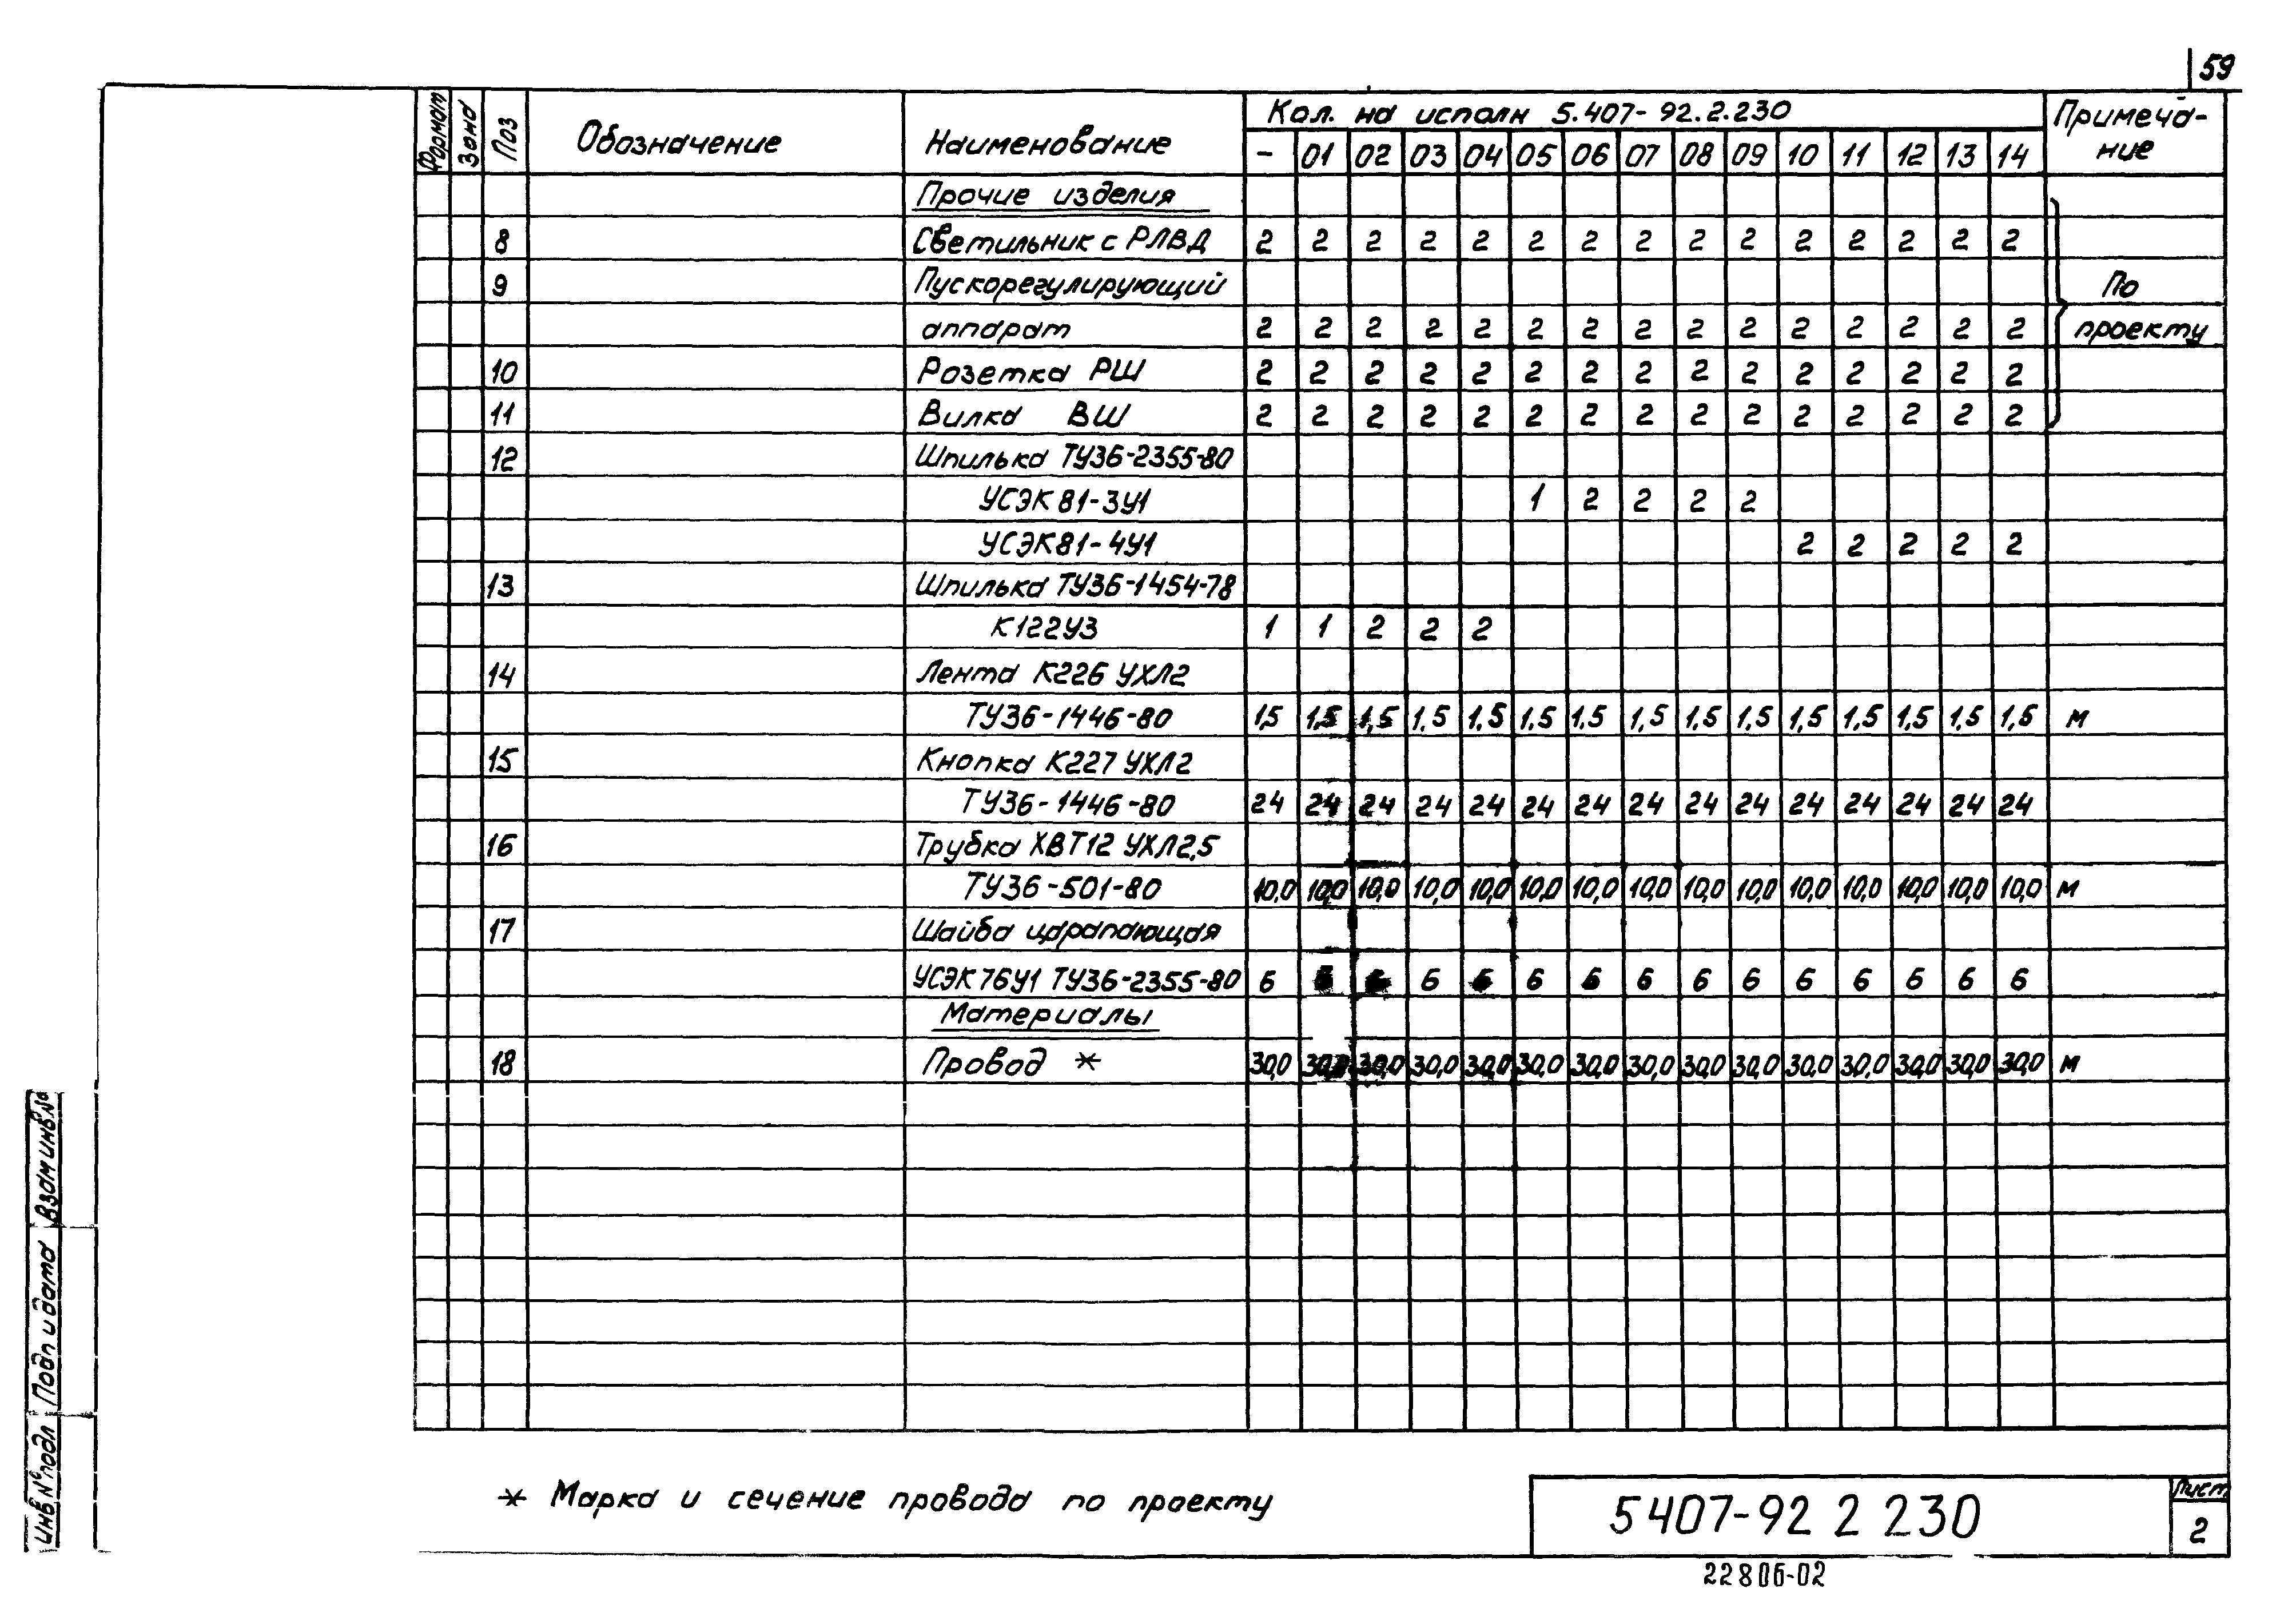 59
Формат Зона Поз Обозначение Наименование Кол. на исполн 5.407-92.2.230 Примеча-
ние
- 01 02 03 04 05 06 07 08 09 10 11 12 13 14
Прочие изделия
8 Светильник с РЛВД 2 2 2 2 2 2 2 2 2 2 2 2 2 2 2
9 Пускорегулирующий По
аппарат 2 2 2 2 2 2 2 2 2 2 2 2 2 2 2 проекту
10 Розетка РШ 2 2 2 2 2 2 2 2 2 2 2 2 2 2 2
11 Вилка ВШ 2 2 2 2 2 2 2 2 2 2 2 2 2 2 2
12 Шпилька ТУ36-2355-80
УСЭК81-3У1 1 2 2 2 2
УСЭК81-4У1 2 2 2 2 2
13 Шпилька ТУ36-1454-78
К122У3 1 1 2 2 2
14 Лента К226 УХЛ2
ТУ36-1446-80 1,5 1,5 1,5 1,5 1,5 1,5 1,5 1,5 1,5 1,5 1,5 1,5 1,5 1,5 1,5 м
15 Кнопка К227 УХЛ2
ТУ36-1446-80 24 24 24 24 24 24 24 24 24 24 24 24 24 24 24
16 Трубка ХВТ12 УХЛ2,5
ТУ36-501-80 10,0 10,0 10,0 10,0 10,0 10,0 10,0 10,0 10,0 10,0 10,0 10,0 10,0 10,0 10,0 м
17 Шайба царапающая
УСЭК76У1 ТУ36-2355-80 6 6 6 6 6 6 6 6 6 6 6 6 6
Материалы
18 Провод * 30,0 30,0 30,0 30,0 30,0 30,0 30,0 30,0 30,0 30,0 30,0 30,0 30,0 30,0 30,0 м
* Марка и сечение провода по проекту
5 407-92 2 230
Лист
2
22806-02
Инв № подл Подп и дата Взам инв №